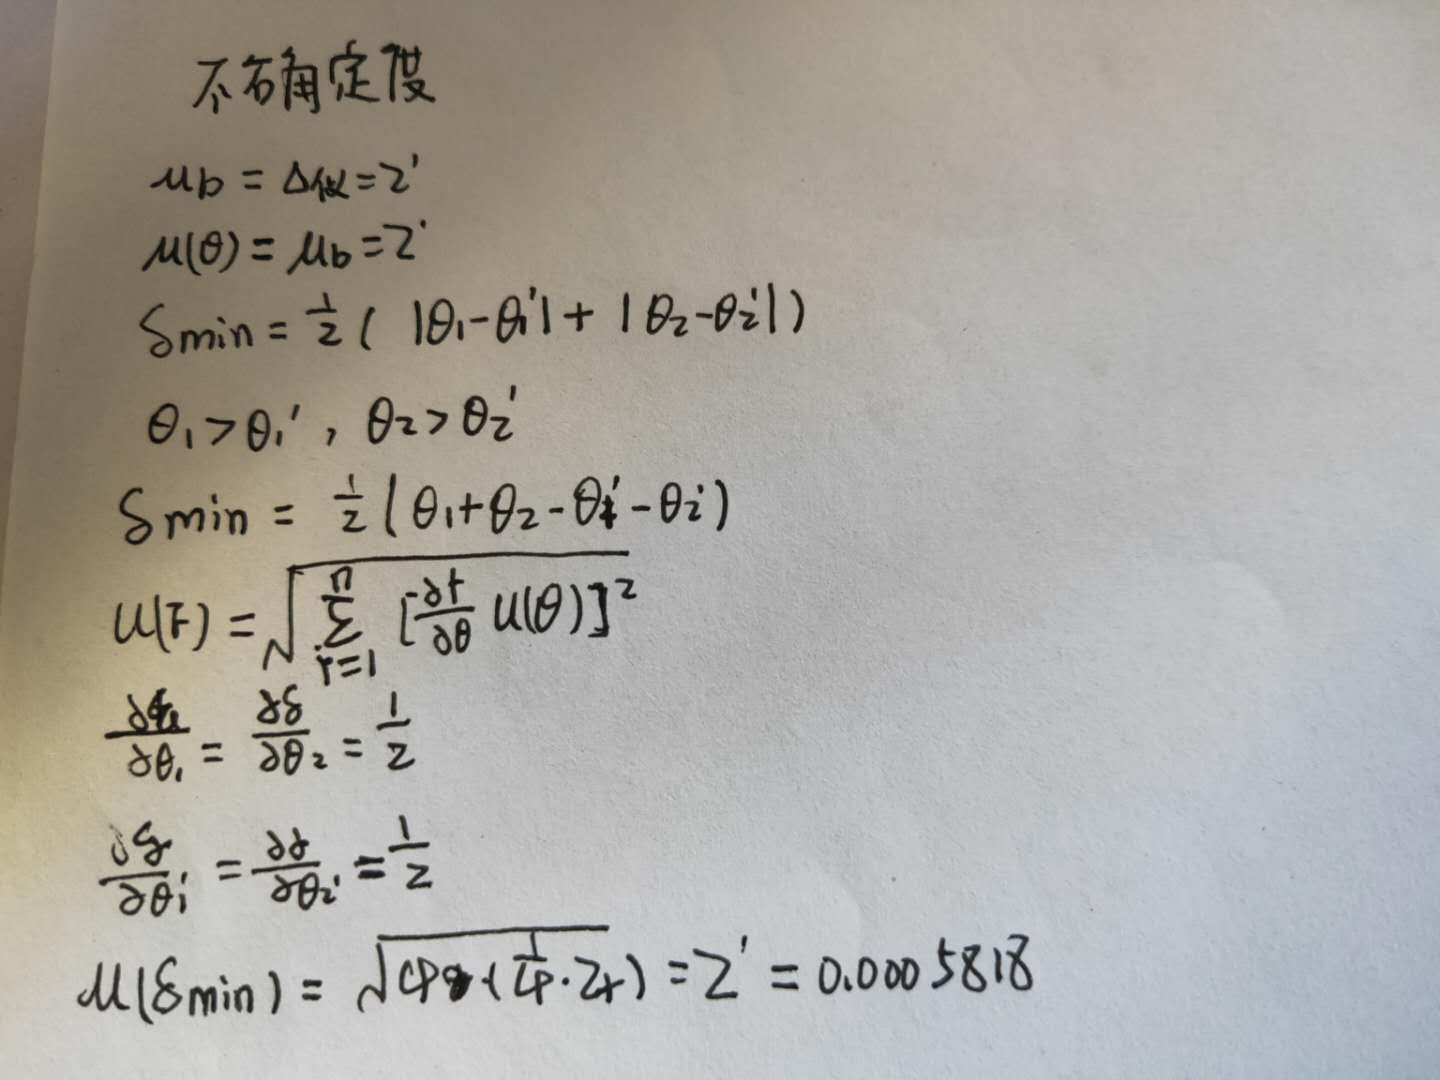 不确定度
μb = Δ仪 = 2'
μ(θ) = μb = 2'
δmin = 1/2 ( |θ1-θ1'| + |θ2-θ2'| )
θ1 > θ1' , θ2 > θ2'
δmin = 1/2 ( θ1+θ2-θ1'-θ2' )
U(F) = √ n Σ i=1 [ ∂f/∂θ U(θ) ]²
∂δ/∂θ1 = ∂δ/∂θ2 = 1/2
∂δ/∂θ1' = ∂δ/∂θ2' = 1/2
μ(δmin) = √ 4 · ( 1/4 · ) = 2' = 0.0005818